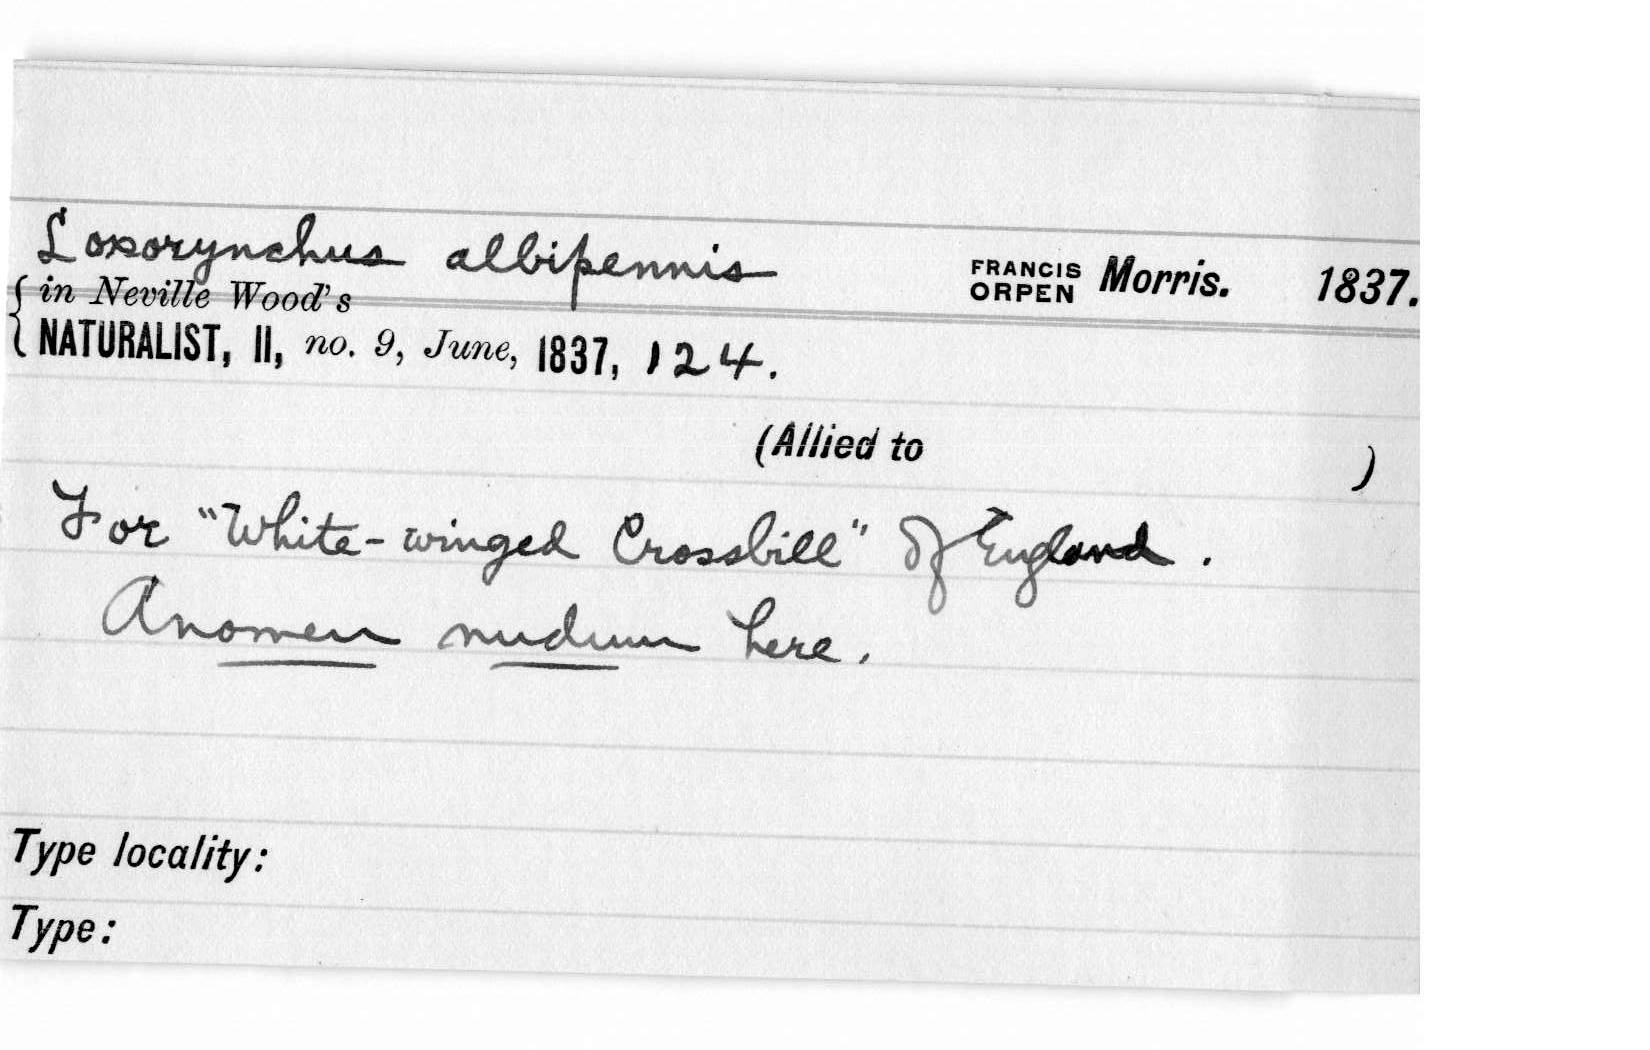 Loxorynchus albipennis FRANCIS ORPEN Morris. 1837.
{ in Neville Wood's
NATURALIST, II, no. 9, June, 1837, 124.
(Allied to )
For "White-winged Crossbill" of England.
A nomen nudum here.
Type locality:
Type: